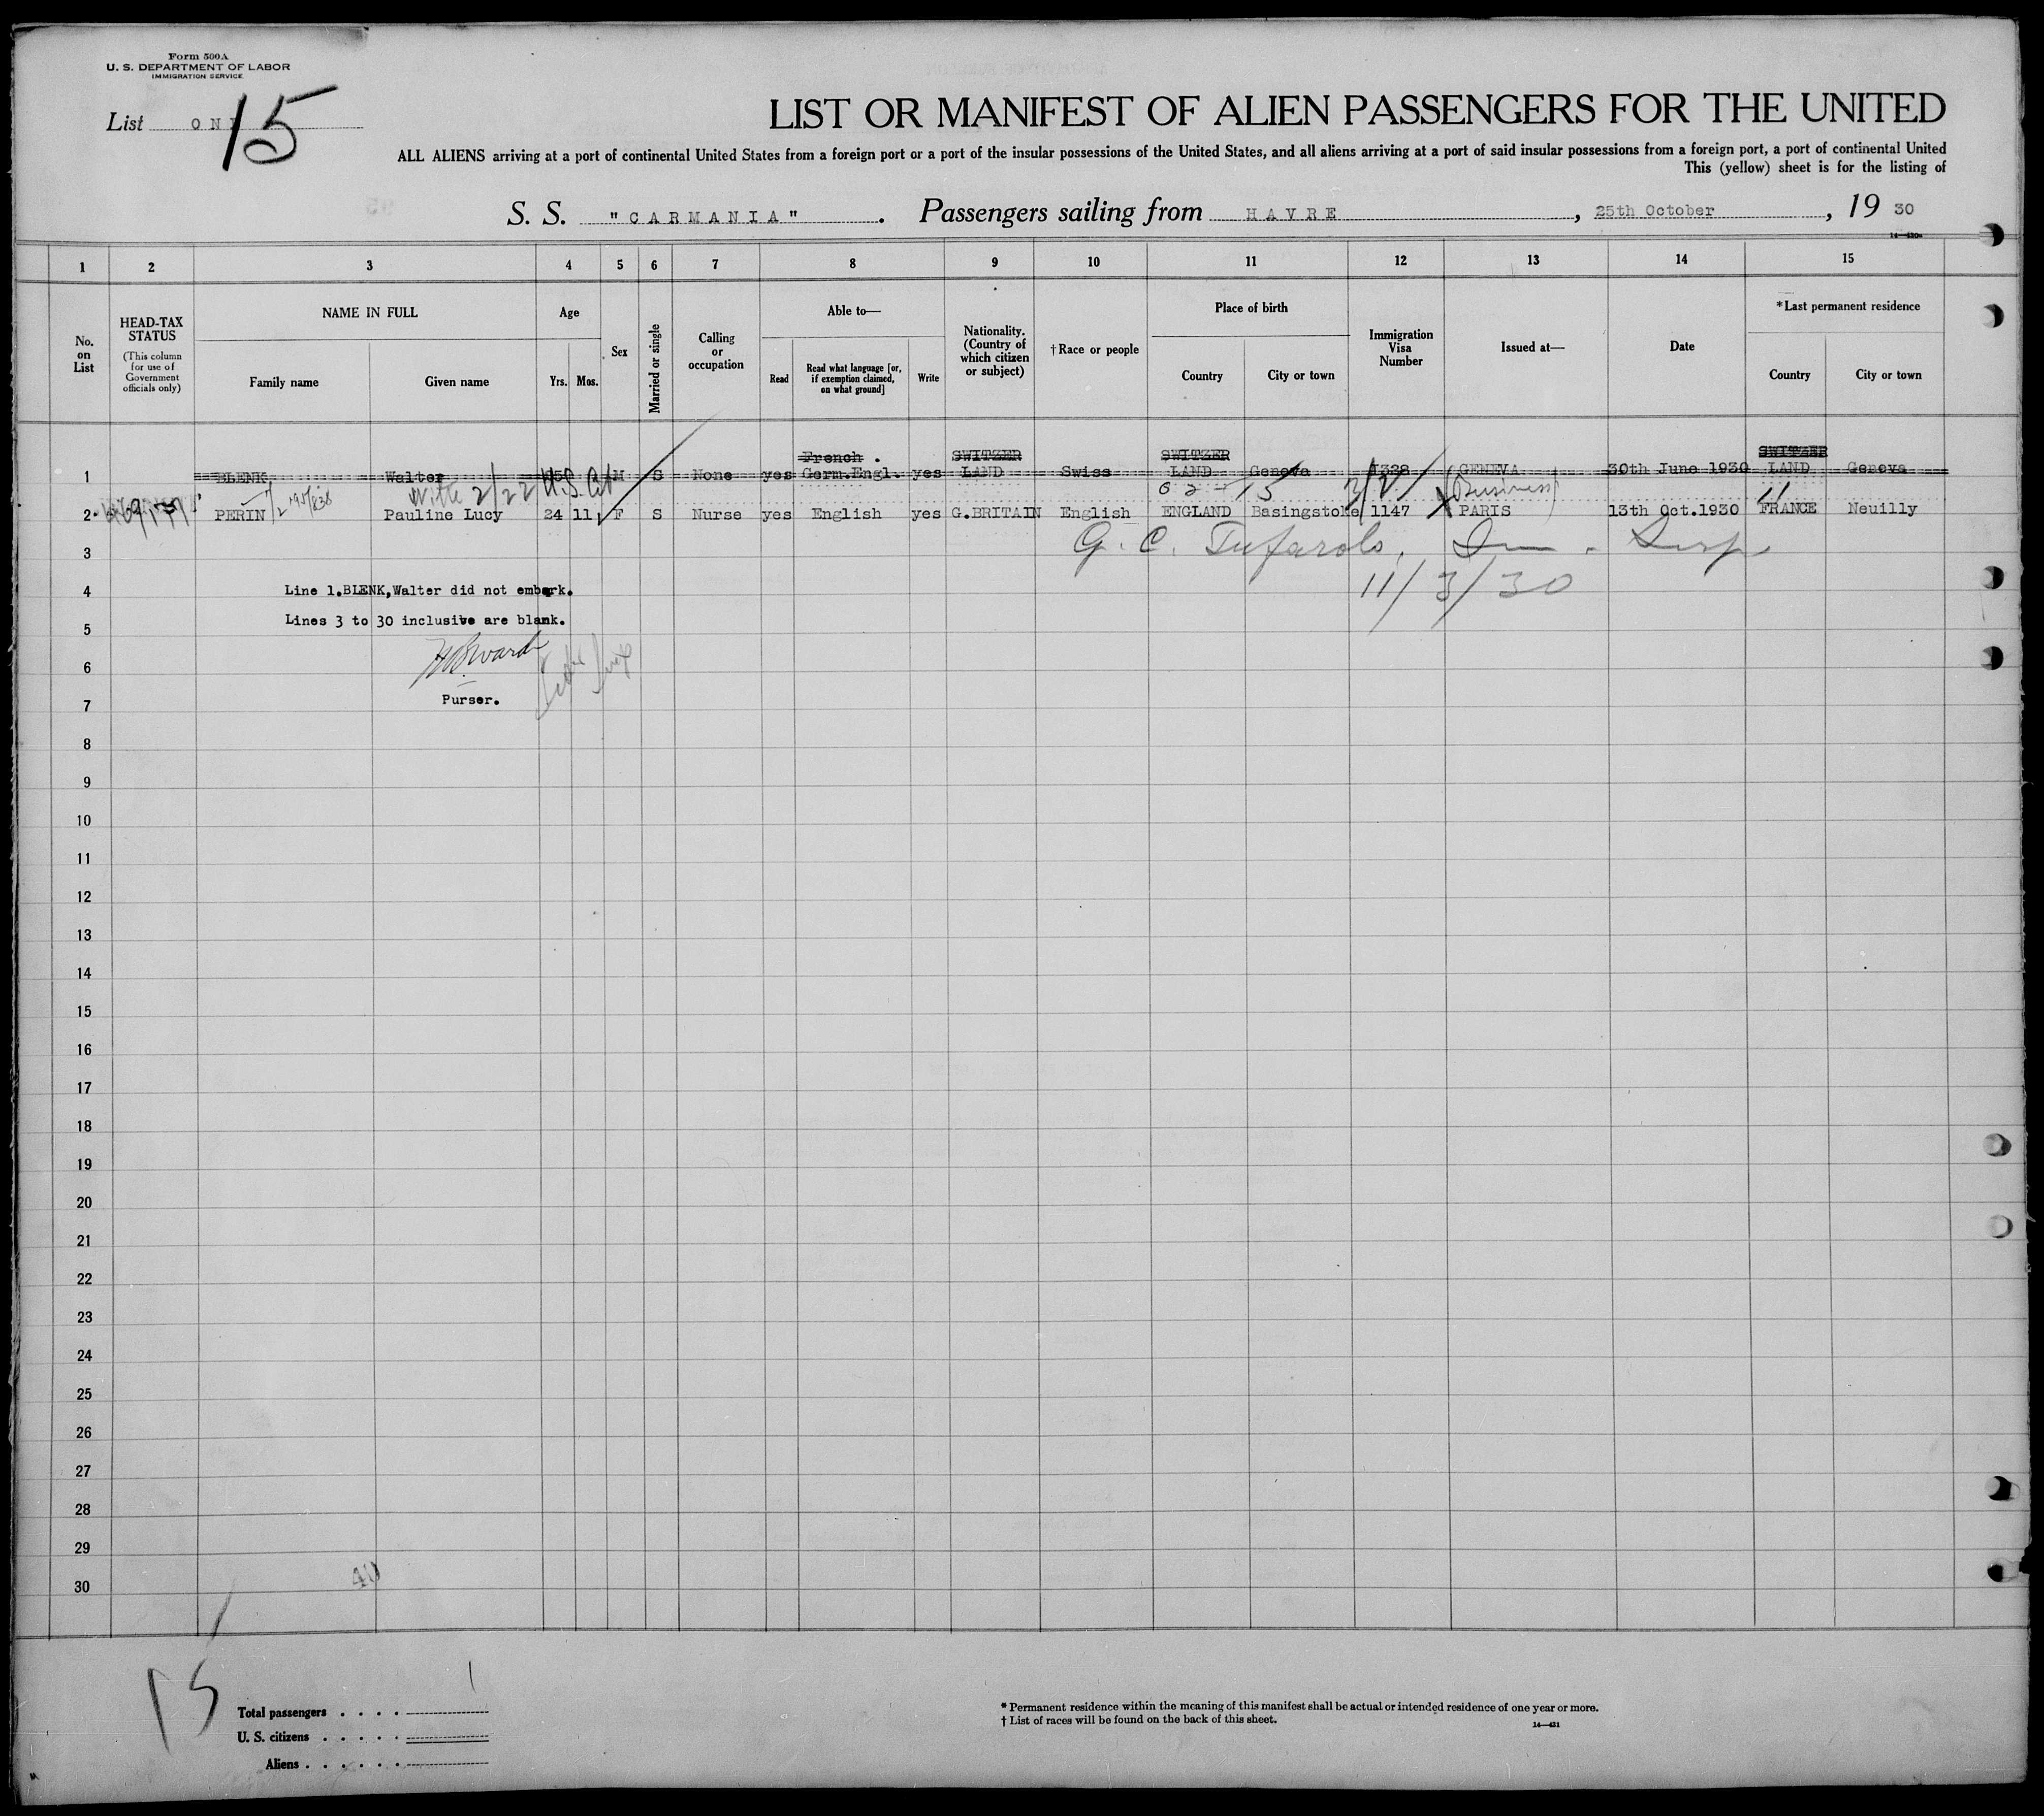 Form 500A
U. S. DEPARTMENT OF LABOR
IMMIGRATION SERVICE
List ONE 15
LIST OR MANIFEST OF ALIEN PASSENGERS FOR THE UNITED
ALL ALIENS arriving at a port of continental United States from a foreign port or a port of the insular possessions of the United States, and all aliens arriving at a port of said insular possessions from a foreign port, a port of continental United
This (yellow) sheet is for the listing of
S. S. "CARMANIA". Passengers sailing from HAVRE, 25th October, 1930
14—430a
1 2 3 4 5 6 7 8 9 10 11 12 13 14 15
No. on List
HEAD-TAX STATUS
(This column for use of Government officials only)
NAME IN FULL
Family name Given name
Age
Yrs. Mos.
Sex
Married or single
Calling or occupation
Able to—
Read
Read what language [or, if exemption claimed, on what ground]
Write
Nationality. (Country of which citizen or subject)
†Race or people
Place of birth
Country City or town
Immigration Visa Number
Issued at—
Date
*Last permanent residence
Country City or town
French . SWITZER SWITZER SWITZER
1 BLENK Walter M S None yes Germ.Engl. yes LAND Swiss LAND Geneva 1338 GENEVA 30th June 1930 LAND Geneva
2/22 (Business)
2 PERIN Pauline Lucy 24 11 F S Nurse yes English yes G.BRITAIN English ENGLAND Basingstoke 1147 PARIS 13th Oct.1930 FRANCE Neuilly
3 G. C. Tufarolo, Imm. Insp
4 Line 1.BLENK,Walter did not embark. 11/3/30
Lines 3 to 30 inclusive are blank.
5
6
Purser.
7
8
9
10
11
12
13
14
15
16
17
18
19
20
21
22
23
24
25
26
27
28
29
40
30
15
1
Total passengers . . . .
U. S. citizens . . . . .
Aliens . . . . . .
* Permanent residence within the meaning of this manifest shall be actual or intended residence of one year or more.
† List of races will be found on the back of this sheet.
14—431